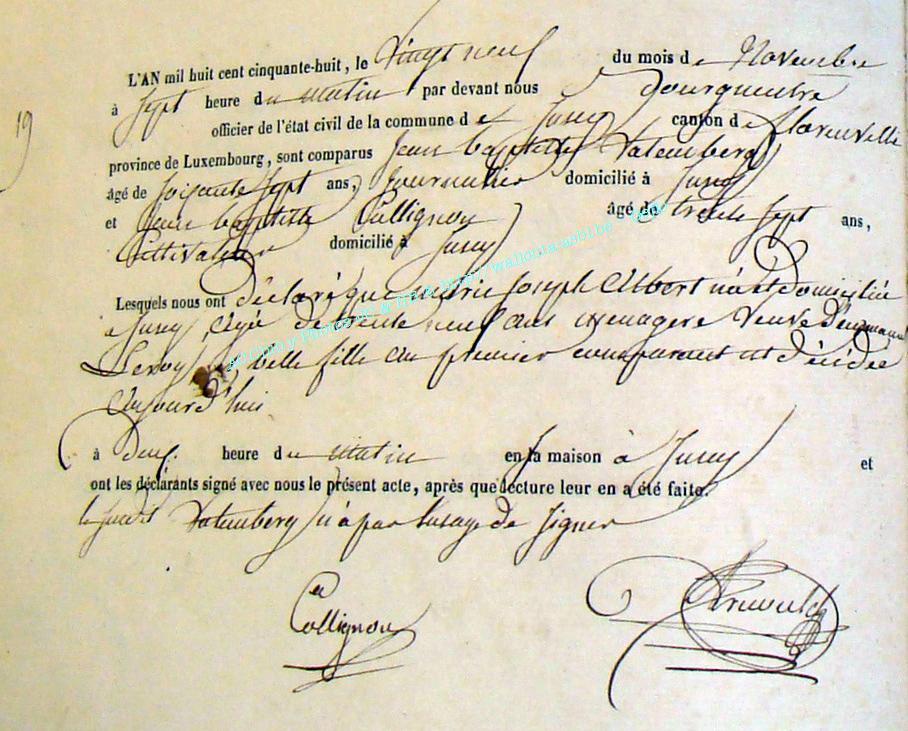 19
L'AN mil huit cent cinquante-huit, le Vingt neuf du mois de Novembre
à Sept heure du matin par devant nous
officier de l'état civil de la commune de Jusey canton de Florenville
province de Luxembourg, sont comparus Jean baptiste Vatemberg
âgé de Soixante Sept ans, Journalier domicilié à Jusey
et Jean baptiste Collignon âgé de trente Sept ans,
Cultivateur domicilié à Jusey
Lesquels nous ont déclaré que marie Joseph Albert née et domiciliée
a Jusey, agée de trente neuf ans menagere Veuve
Leroy, belle fille au premier comparant est décédée
Aujourd'hui
à deux heure du matin en sa maison à Jusey et
ont les déclarants signé avec nous le présent acte, après que lecture leur en a été faite.
le Vatemberg n'a pas l'usage de Signer
Collignon